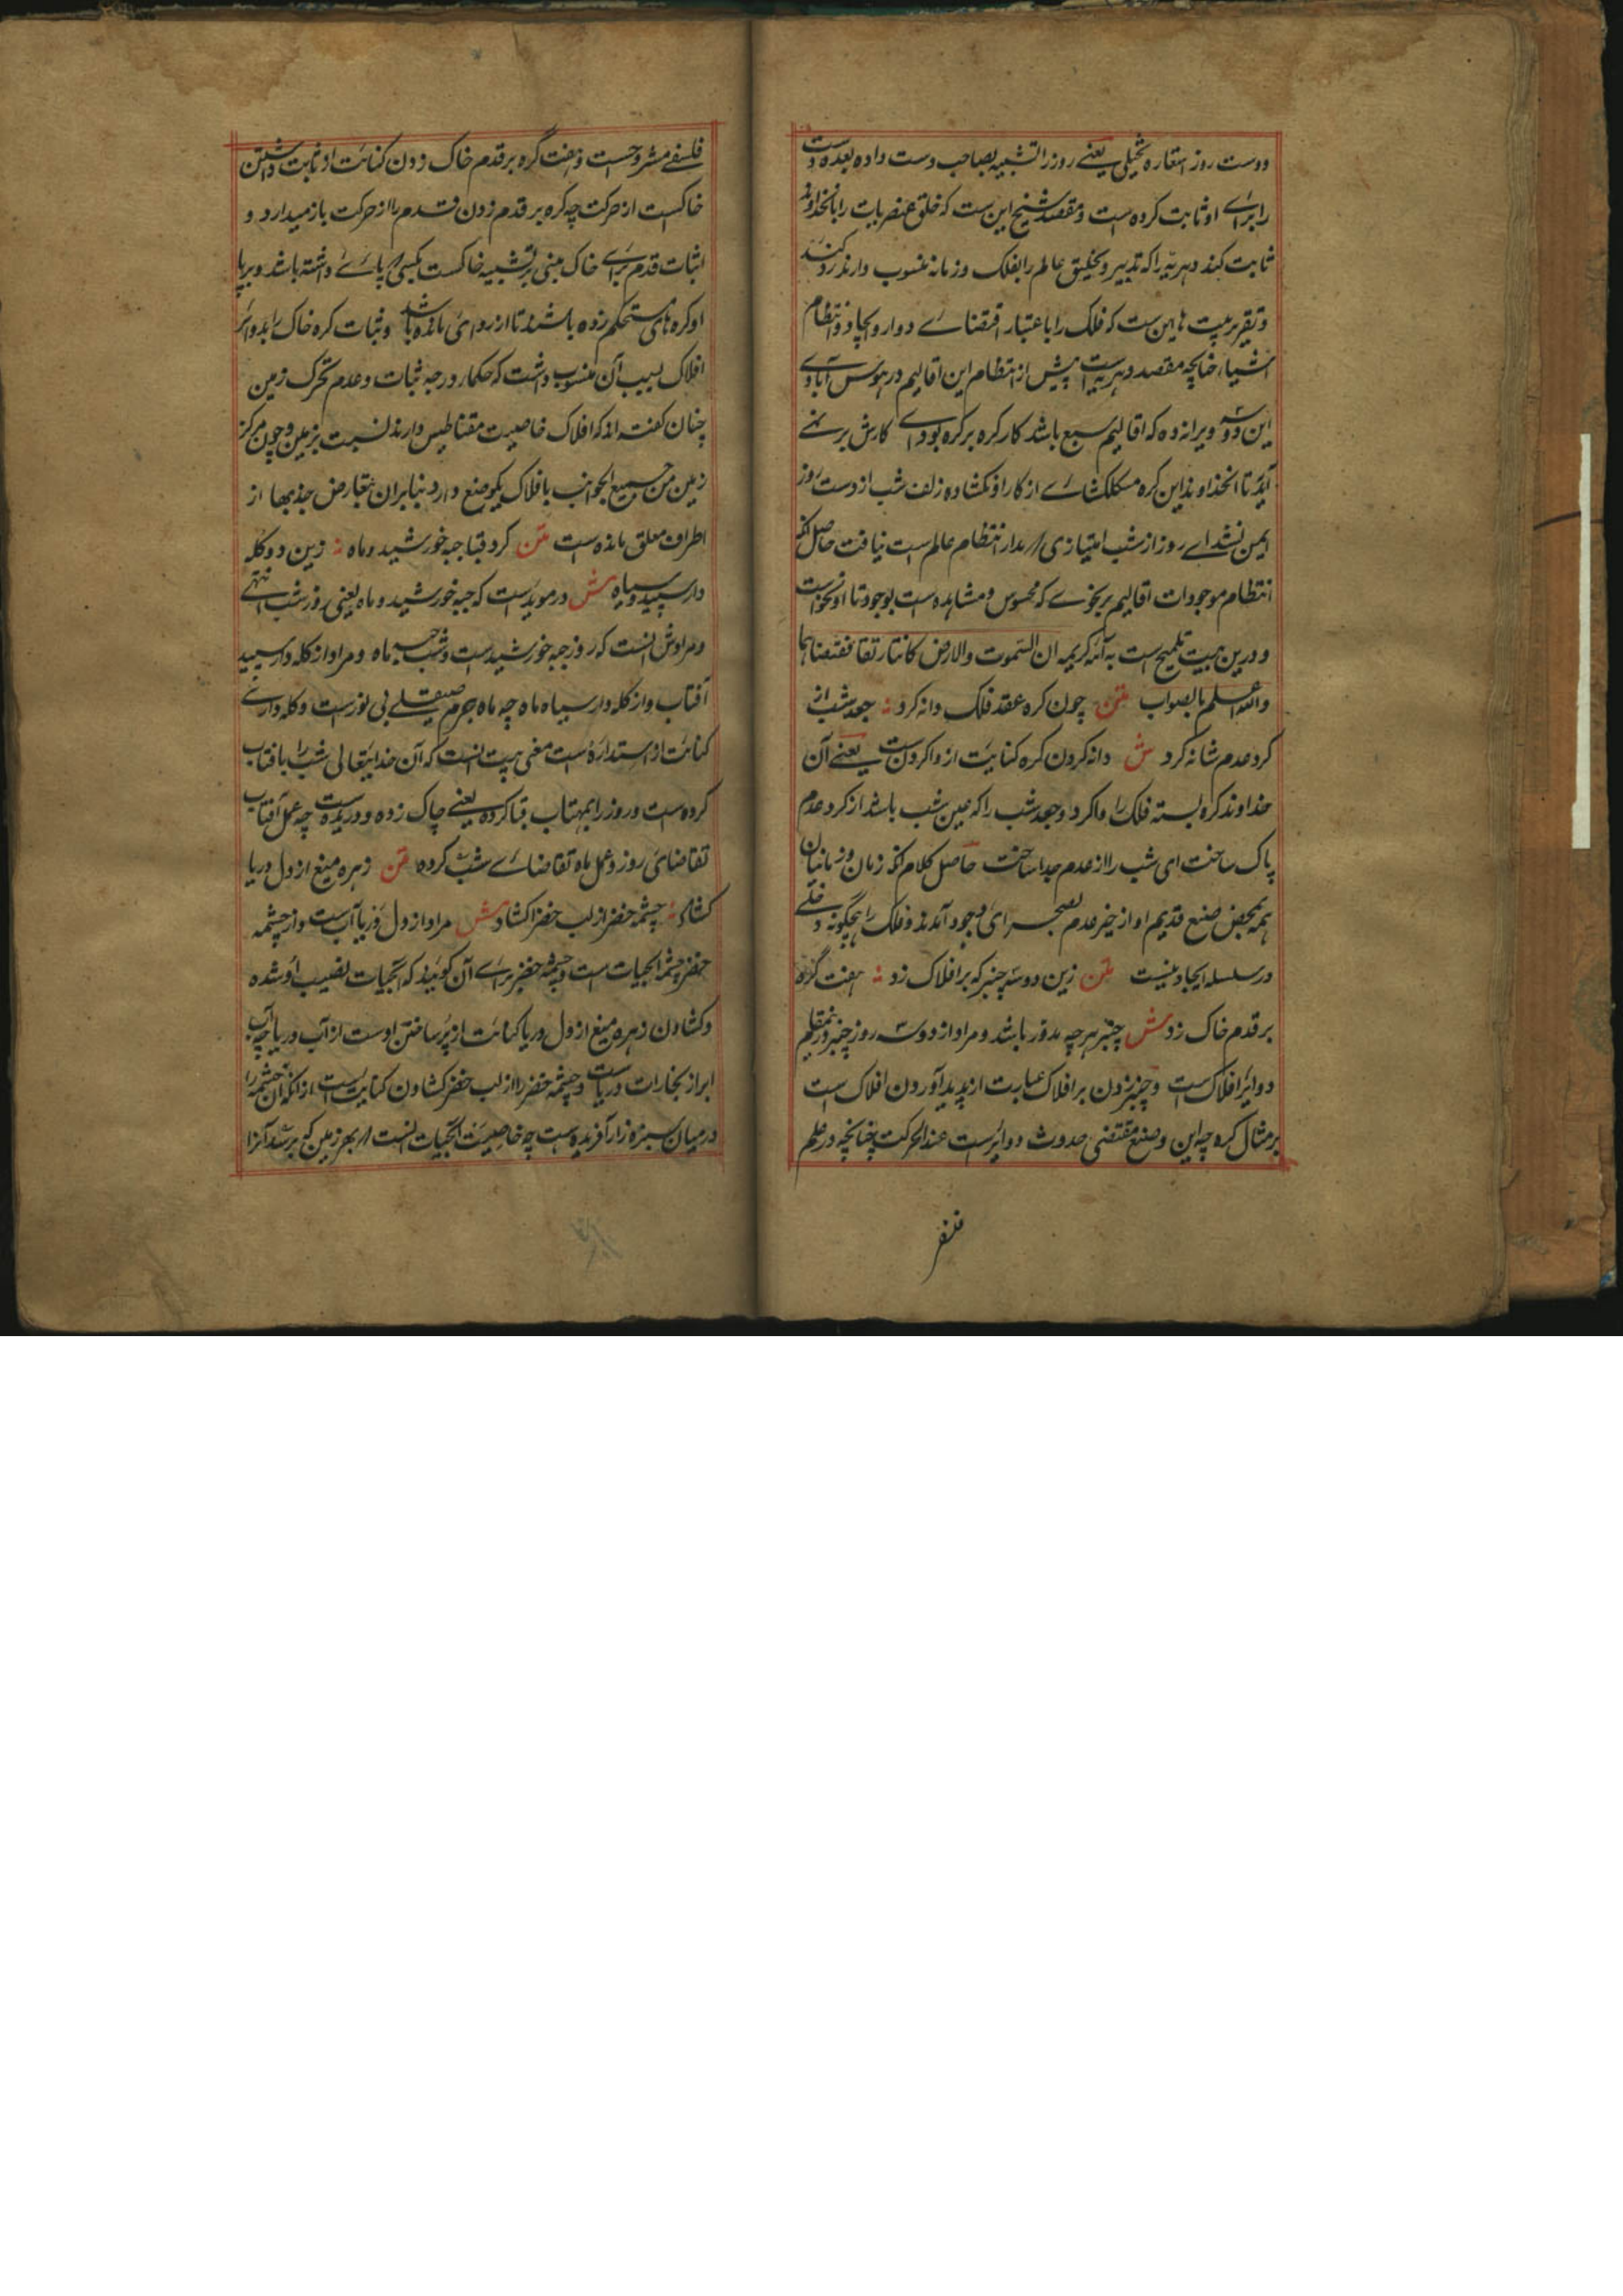 دوست روز استعاره تخییلی یعنے روز را تشبیه بصاحب دست داده بعده دست
را براے او ثابت کرده است و مقصد شیخ این ست که خلق عنصریات را بآنخداوند
ثابت کند دهریه را که تدبیر و تخلیق عالم را بفلک و زمانه منسوب دارند رد کند
و تقریر بیت هاین ست که فلک را باعتبار اقتضاے دوار و ایجاد و انتظام
اشیا چنانچه مقصد دهریه است پیش از انتظام این اقالیم در هوس آبادے
این ده ویرانه ده که اقالیم سبع باشد کار گره بر گره بودے کارش بر نمے
آید تا آنخداوند این گره مشکلکشاے از کار او نکشاده زلف شب از دست روز
ایمن نشد اے روز از شب امتیازی که مدار انتظام عالم است نیافت حاصل آنکه
انتظام موجودات اقالیم بر نحوے که محسوس و مشاهده است بوجود تا او نخواست
و درین بیت تلمیح است به آئه کریمه ان السموت والارض کانتا رتقا ففتقناهما
والله اعلم بالصواب متن چون گره عقد فلک دانه کرد ؞ جعد شب از
گرد عدم شانه کرد ش دانه کردن گره کنایت از واکردن ست یعنے آن
خداوند گره بسته فلک را واکرد و جعد شب را که عین شب باشد از گرد عدم
پاک ساخت ای شب را از عدم جدا ساخت حاصل کلام آنکه زمان و زمانیان
همه بمحض صنع قدیم او از حیز عدم بصحراے وجود آمدند و فلک را هیچگونه دخلے
در سلسله ایجاد نیست متن زین دو سه چنبر که بر افلاک زد ؞ هفت گره
بر قدم خاک زد ش چنبر هر چه مدور باشد و مراد از دو سه روز چنبر درینمقام
دوائر افلاک ست و چنبر زدن بر افلاک عبارت از پدید آوردن افلاک است
بر مثال گره چه این وضع مقتضی حدوث دوایرست عند الحرکت چنانچه در علم
فلسفے مشروحست و هفت گره بر قدم خاک زدن کنایت از ثابت داشتن
خاکست از حرکت چه گره بر قدم زدن قدم را از حرکت باز میدارد و
اثبات قدم براے خاک مبنی بر تشبیه خاکست بکسی که پاے داشته باشد و برپا
او گره های مستحکم زده باشند تا از روای مانده باشد و ثبات کره خاک را بدوائر
افلاک بسبب آن منسوب داشت که حکما در وجه ثبات و عدم تحرک زمین
چنان گفته اند که افلاک خاصیت مقناطیس دارند نسبت بزمین و چون مرکز
زمین من جمیع الجوانب با افلاک یکوضع دارد بنابران بتعارض جذبها از
اطراف معلق مانده است متن کرد قبا جبه خورشید و ماه ؞ زین دو کله
دار سپید و سیاه ش در مویدست که جبه خورشید و ماه یعنی روز و شب انتهے
و مرادش آنست که روز جبه خورشید ست و شب جبه ماه و مراد از کله دار سپید
آفتاب و از کله دار سیاه ماه چه ماه جرم صیقلے بی نورست و کله دارے
کنایت از استداره است معنی بیت آنست که آن خدایتعالی شب را بافتاب
کرده ست و روز را بمهتاب قبا کرده یعنے چاک زده و دریده است چه عمل آفتاب
تقاضای روز و عمل ماه تقاضاے شب کرده متن زهره میغ از دل دریا
کشاد ؞ چشمه خضر از لب خضرا کشاد ش مراد از دل دریا آب ست و از چشمه
خضر چشمه آبحیات است و چشمه خضر براے آن گویند که آبحیات نصیب او شده
و کشادن زهره میغ از دل دریا کنایت از پر ساختن اوست از آب دریا چه آب
ابر از بخارات دریاست و چشمه خضر را از لب خضر کشادن کنایت است از آنکه آن چشمه را
درمیان سبزه زار آفریده است چه خاصیت آبحیات آنست که بهر زمین که برسد آنرا